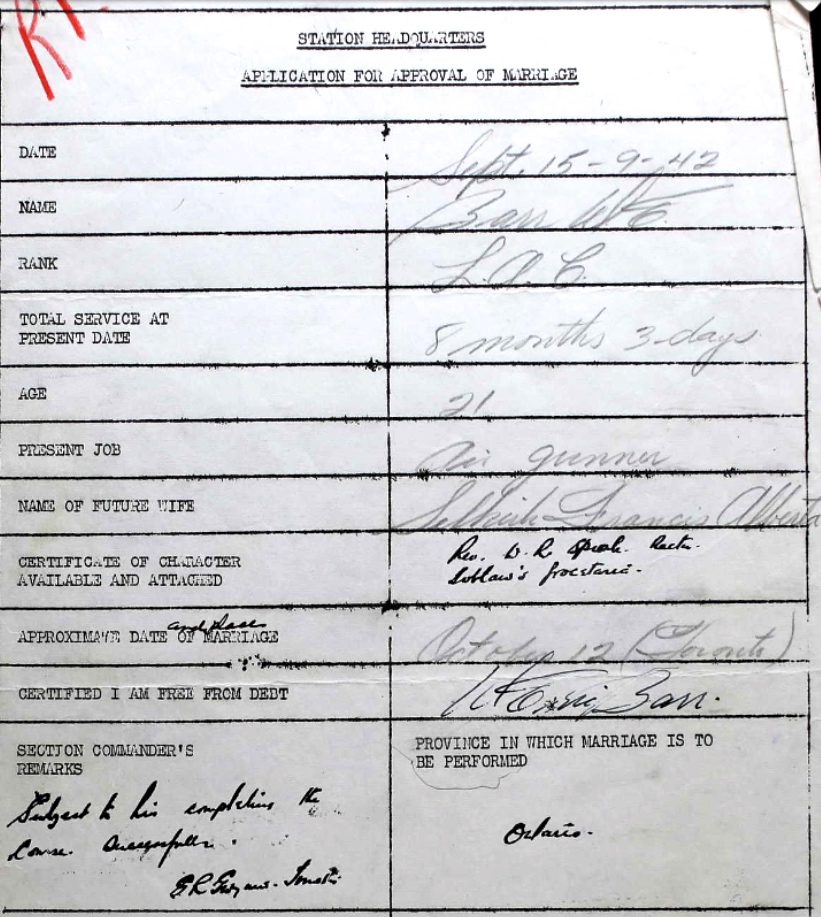 STATION HEADQUARTERS
APPLICATION FOR APPROVAL OF MARRIAGE
DATE Sept. 15-9-42
NAME Barr W E
RANK L.A.C.
TOTAL SERVICE AT
PRESENT DATE 8 months 3-days
AGE 21
PRESENT JOB Air gunner
NAME OF FUTURE WIFE Selkirk Francis Alberta
CERTIFICATE OF CHARACTER
AVAILABLE AND ATTACHED
Rev. D. R.
Loblaw's
and place
APPROXIMATE DATE OF MARRIAGE October 12 (Toronto)
CERTIFIED I AM FREE FROM DEBT W Barr.
SECTION COMMANDER'S
REMARKS
Subject to his completing the
Course successfully.
PROVINCE IN WHICH MARRIAGE IS TO
BE PERFORMED
Ontario.